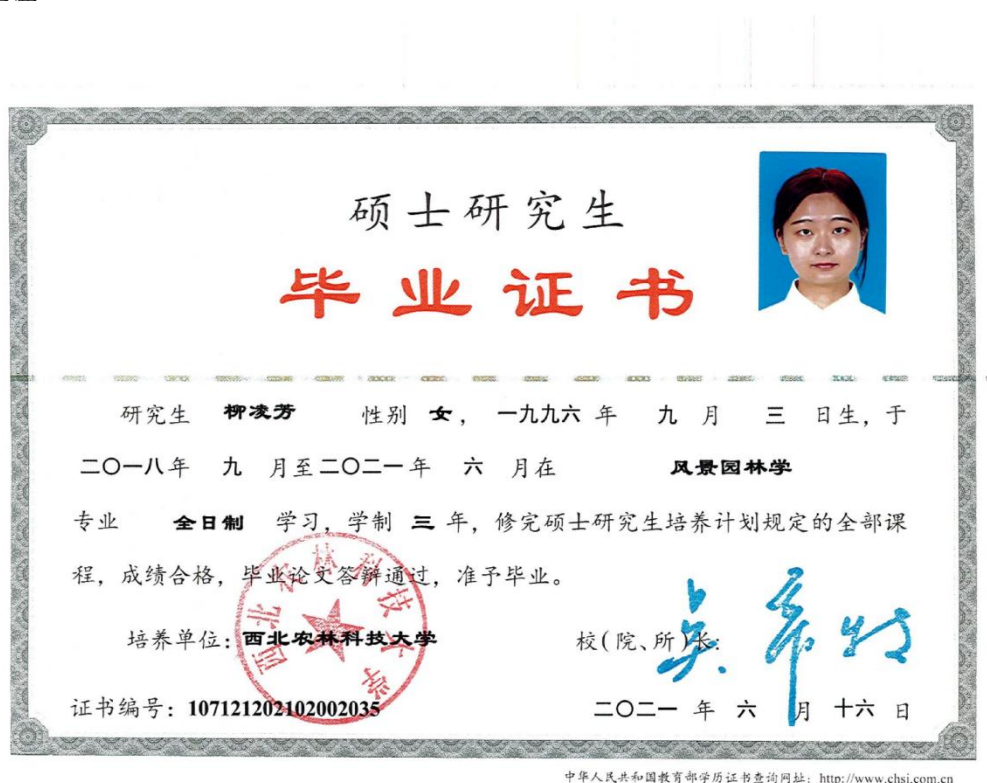 硕士研究生
毕业证书
研究生 柳凌芳 性别 女， 一九九六 年 九 月 三 日生，于
二〇一八年 九 月至二〇二一年 六 月在 风景园林学
专业 全日制 学习，学制 三 年，修完硕士研究生培养计划规定的全部课
程，成绩合格，毕业论文答辩通过，准予毕业。
培养单位：西北农林科技大学 校(院、所)长：
西北农林科技大学
证书编号：107121202102002035 二〇二一 年 六 月 十六 日
中华人民共和国教育部学历证书查询网址：http://www.chsi.com.cn